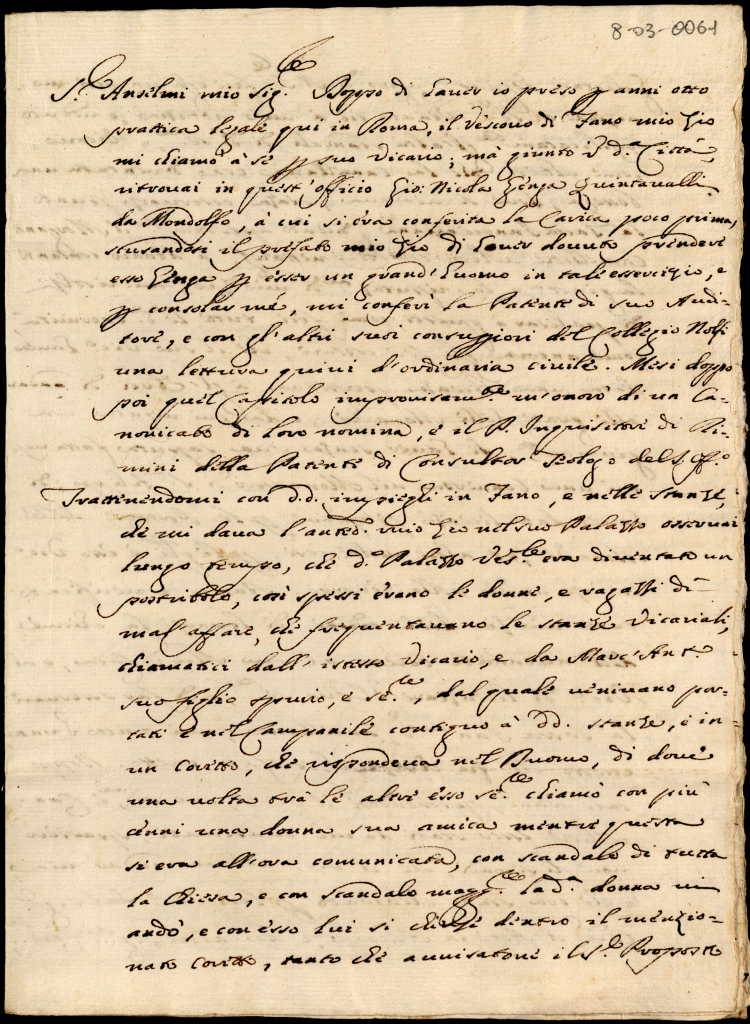 8-03-0061
S.r Anselmi mio Sig.re Doppo di haver io preso p anni otto
prattica legale qui in Roma, il Vescovo di Fano mio Zio
mi chiamò à sè p suo Vicario; mà giunto i d.a Città,
ritrovai in quest'officio Gio: Nicola Genga Quintavalli
da Mondolfo, à cui si era conferita la Carica poco prima,
scusandosi il prefato mio Zio di haver dovuto prendere
esso Genga p esser un grand'huomo in tal'essercizio, e
p consolar mé, mi conferì la Patente di suo Audi-
tore, e con gl'altri suoi consuggiori del Collegio Nolfi
una lettura quivi d'ordinaria civile. Mesi doppo
poi quel Capitolo improvisam.te m'onorò di un Ca-
nonicato di loro nomina, e il P. Inquisitore di Ri-
mini della Patente di Consultor Teologo del S. Off.o
Trattenendomi con d.d. impieghi in Fano, e nelle stanze,
che mi dava l'anted.o mio Zio nel suo Palazzo osservai
lungo tempo, che d.o Palazzo Ves.le era diventato un
postribolo, così spessi érano le donne, e ragazzi di
mal'affare, che frequentavano le stanze Vicariali,
chiamatici dall'istesso Vicario, e da Marc'Ant.o
suo figlio spurio, e se.te, dal quale venivano por-
tati e nel Campanile contiguo à dd. stanze, e in
un coretto, che rispondeva nel Duomo, di dove
una volta trà le altre esso se.te chiamò con più
cenni una donna sua amica mentre questa
si era all'ora comunicata, con scandalo di tutta
la Chiesa, e con scandalo magg.re la d.a donna vi
andò, e con esso lui si chiuse dentro il menzio-
nato coretto, tanto che avvisatone il S.r Proposto